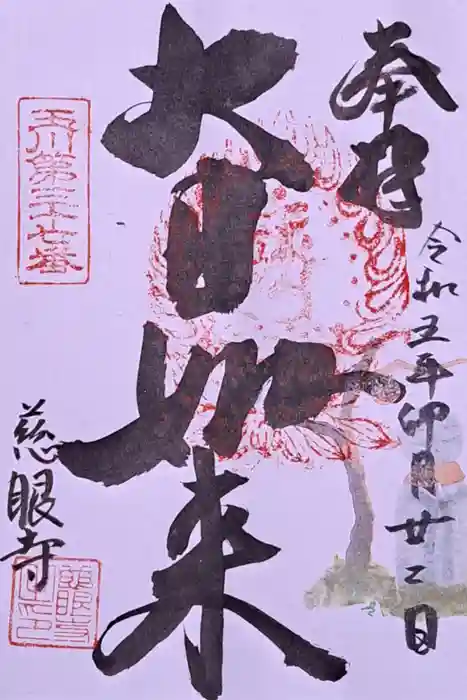 奉拝
令和五年卯月廿二日
大日如来
玉川第三十七番
慈眼寺